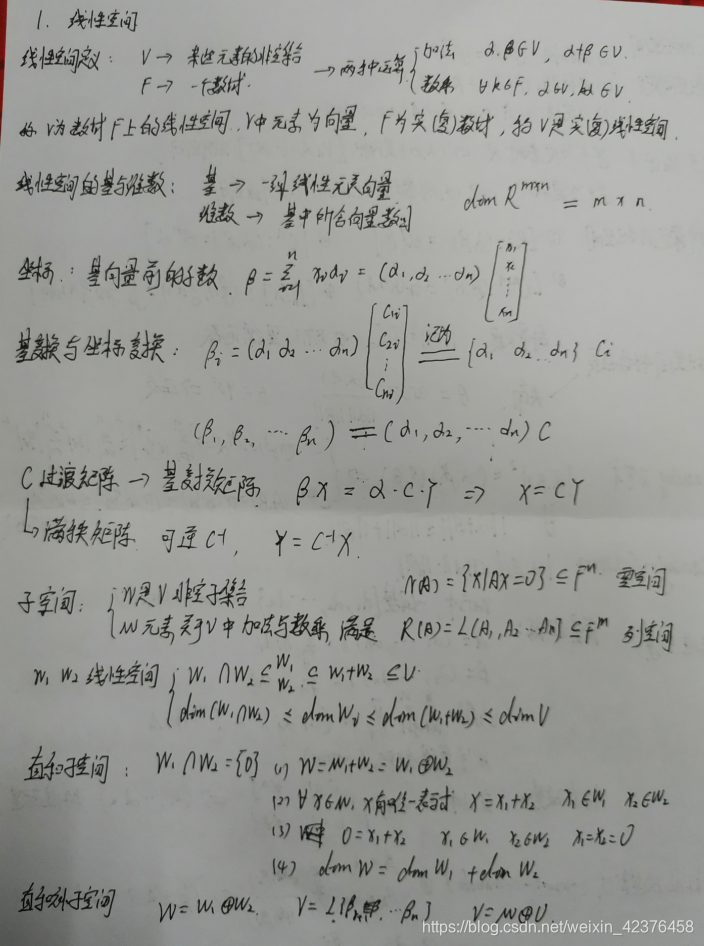 1. 线性空间
线性空间定义: V → 某些元素的非空集合 → 两种运算 { 加法 α,β∈V, α+β∈V.
F → 一个数域. 数乘 ∀k∈F, α∈V, kα∈V
称V为数域F上的线性空间, V中元素为向量, F为实(复)数时, 称V是实(复)线性空间.
线性空间的基与维数: 基 → 一组线性无关向量 dim R^{m×n} = m×n.
维数 → 基中所含向量数目
坐标: 基向量前的系数 β = Σ_{i=1}^{n} x_iα_i = (α1,α2 … αn) [x1 x2 ⋮ xn]
基变换与坐标变换: β_i = (α1 α2 … αn) [C1i C2i ⋮ Cni] 记为 {α1 α2 … αn} Ci
(β1, β2, … βn) = (α1, α2, … αn) C
C 过渡矩阵 → 基变换矩阵 βX = α·C·Y => X = CY
↳ 满秩矩阵 可逆 C^{-1}, Y = C^{-1}X.
N(A) = {X|AX=0} ⊆ F^n 零空间
子空间: { W是V非空子集合
W元素关于V中加法与数乘, 满足 R(A) = L{A1, A2 … An} ⊆ F^m 列空间
W1 W2 线性空间 { W1∩W2 ⊆ W1 W2 ⊆ W1+W2 ⊆ V
dim(W1∩W2) ≤ dimWi ≤ dim(W1+W2) ≤ dimV
直和子空间: W1∩W2 = {0} (1) W = W1+W2 = W1⊕W2
(2) ∀x∈W, x有唯一表示 x = x1+x2 x1∈W1 x2∈W2
(3) 0 = x1+x2 x1∈W1 x2∈W2 x1=x2=0
(4) dim W = dim W1 + dim W2
直和补子空间 W = W1⊕W2. V = W⊕U.
https://blog.csdn.net/weixin_42376458